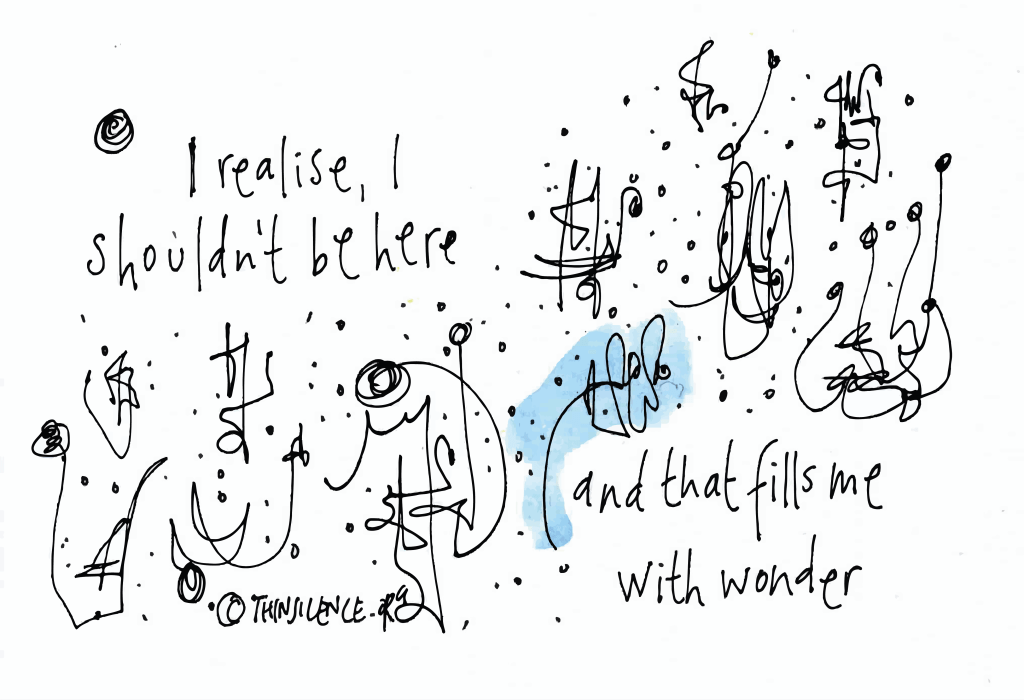 I realise, I
shouldn't be here
and that fills me
with wonder
© THINSILENCE.ORG